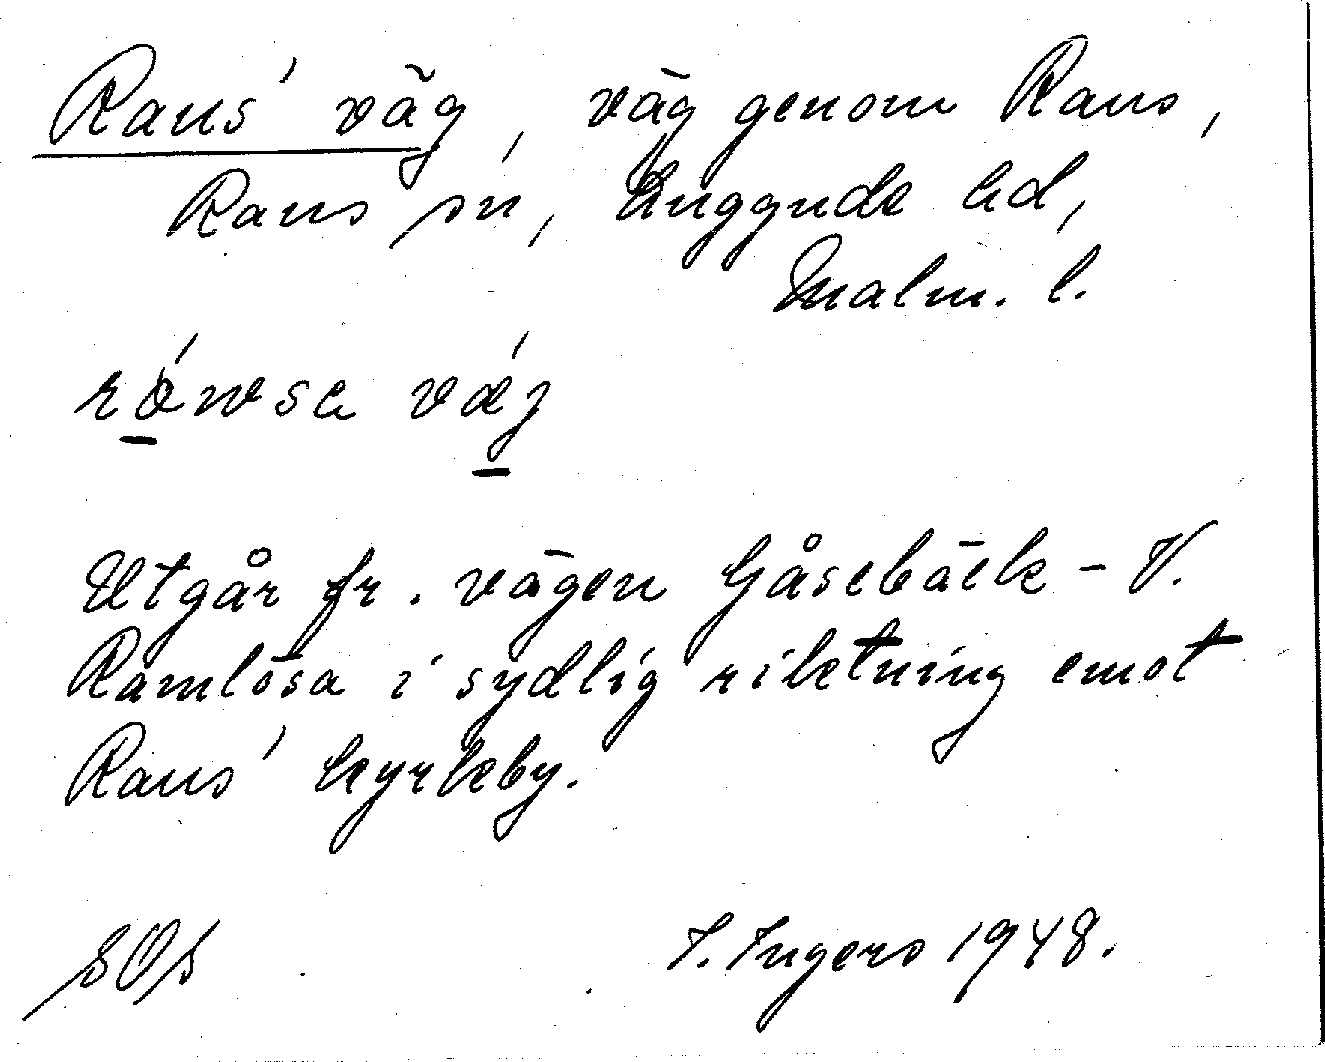 Raus' väg, väg genom Raus,
Raus sn, Luggude hd,
Malm. l.
rówsa vǽj
Utgår fr. vägen Gåsebäck - V.
Ramlösa i sydlig riktning emot
Raus' kyrkby.
SOS I. Ingers 1948.